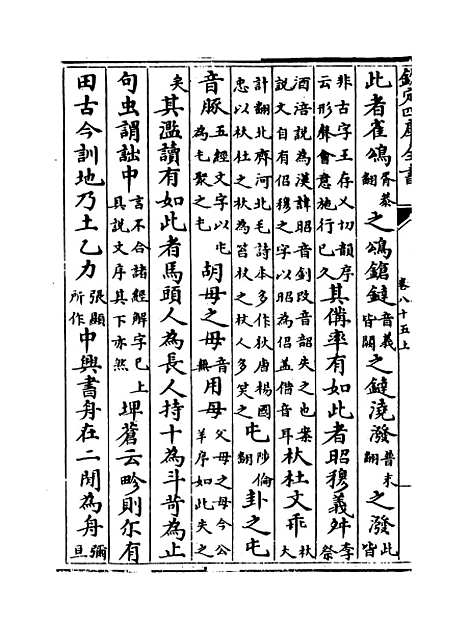 欽定四庫全書
卷八十五上
此者雀胥慕翻之鎗鐽音義皆闕之鐽澆潑普末翻之潑此皆
非古字王存乂切韻序云形聲會意施行已久其傋率有如此者昭穆義舛李祭
酒涪說為漢諱昭音釗改音韶失之也案說文自有佋穆之字以昭為佋蓋借音耳杕杜文乖杕大
計翻北齊河北毛詩本多作狄唐楊國忠以杕杜之杕為笞杖之杖人多笑之屯陟倫翻卦之屯
音豚五經文字以屯為屯聚之屯胡母之毋音無用母父母之母今公羊序如此失之
矣其濫讀有如此者馬頭人為長人持十為斗苛為止
句虫謂詘中言不合諸經解字已上具說文序其下亦然埤蒼云畛則尒有
田古今訓地乃土乙力張顯所作中興書舟在二閒為舟彌旦